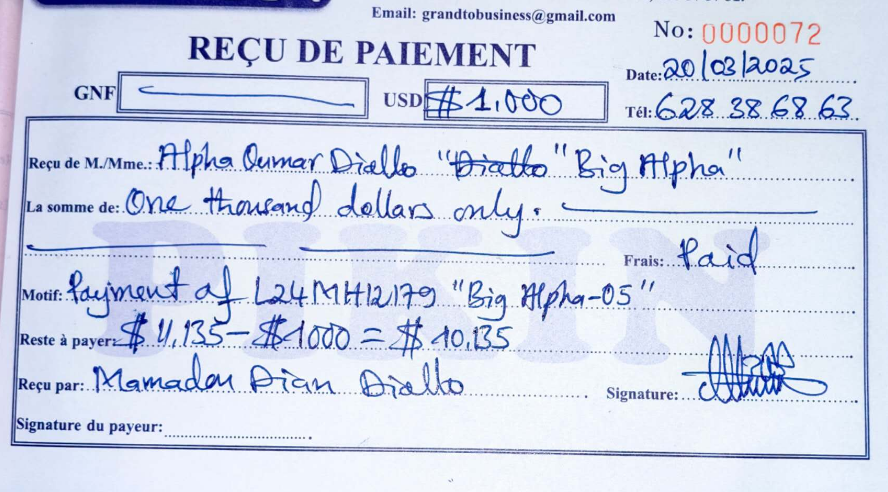 Email: grandtobusiness@gmail.com
No: 0000072
REÇU DE PAIEMENT
Date: 20/03/2025
GNF
USD $ 1.000
Tél: 628 38 68 63
Reçu de M./Mme.: Alpha Oumar Diallo "Diallo" "Big Alpha"
La somme de: One thousand dollars only.
Frais: Paid
Motif: Payment of L24MH12179 "Big Alpha-05"
Reste à payer: $ 11,135 - $1000 = $ 10,135
Reçu par: Mamadou Dian Diallo
Signature:
Signature du payeur:
PIKIN